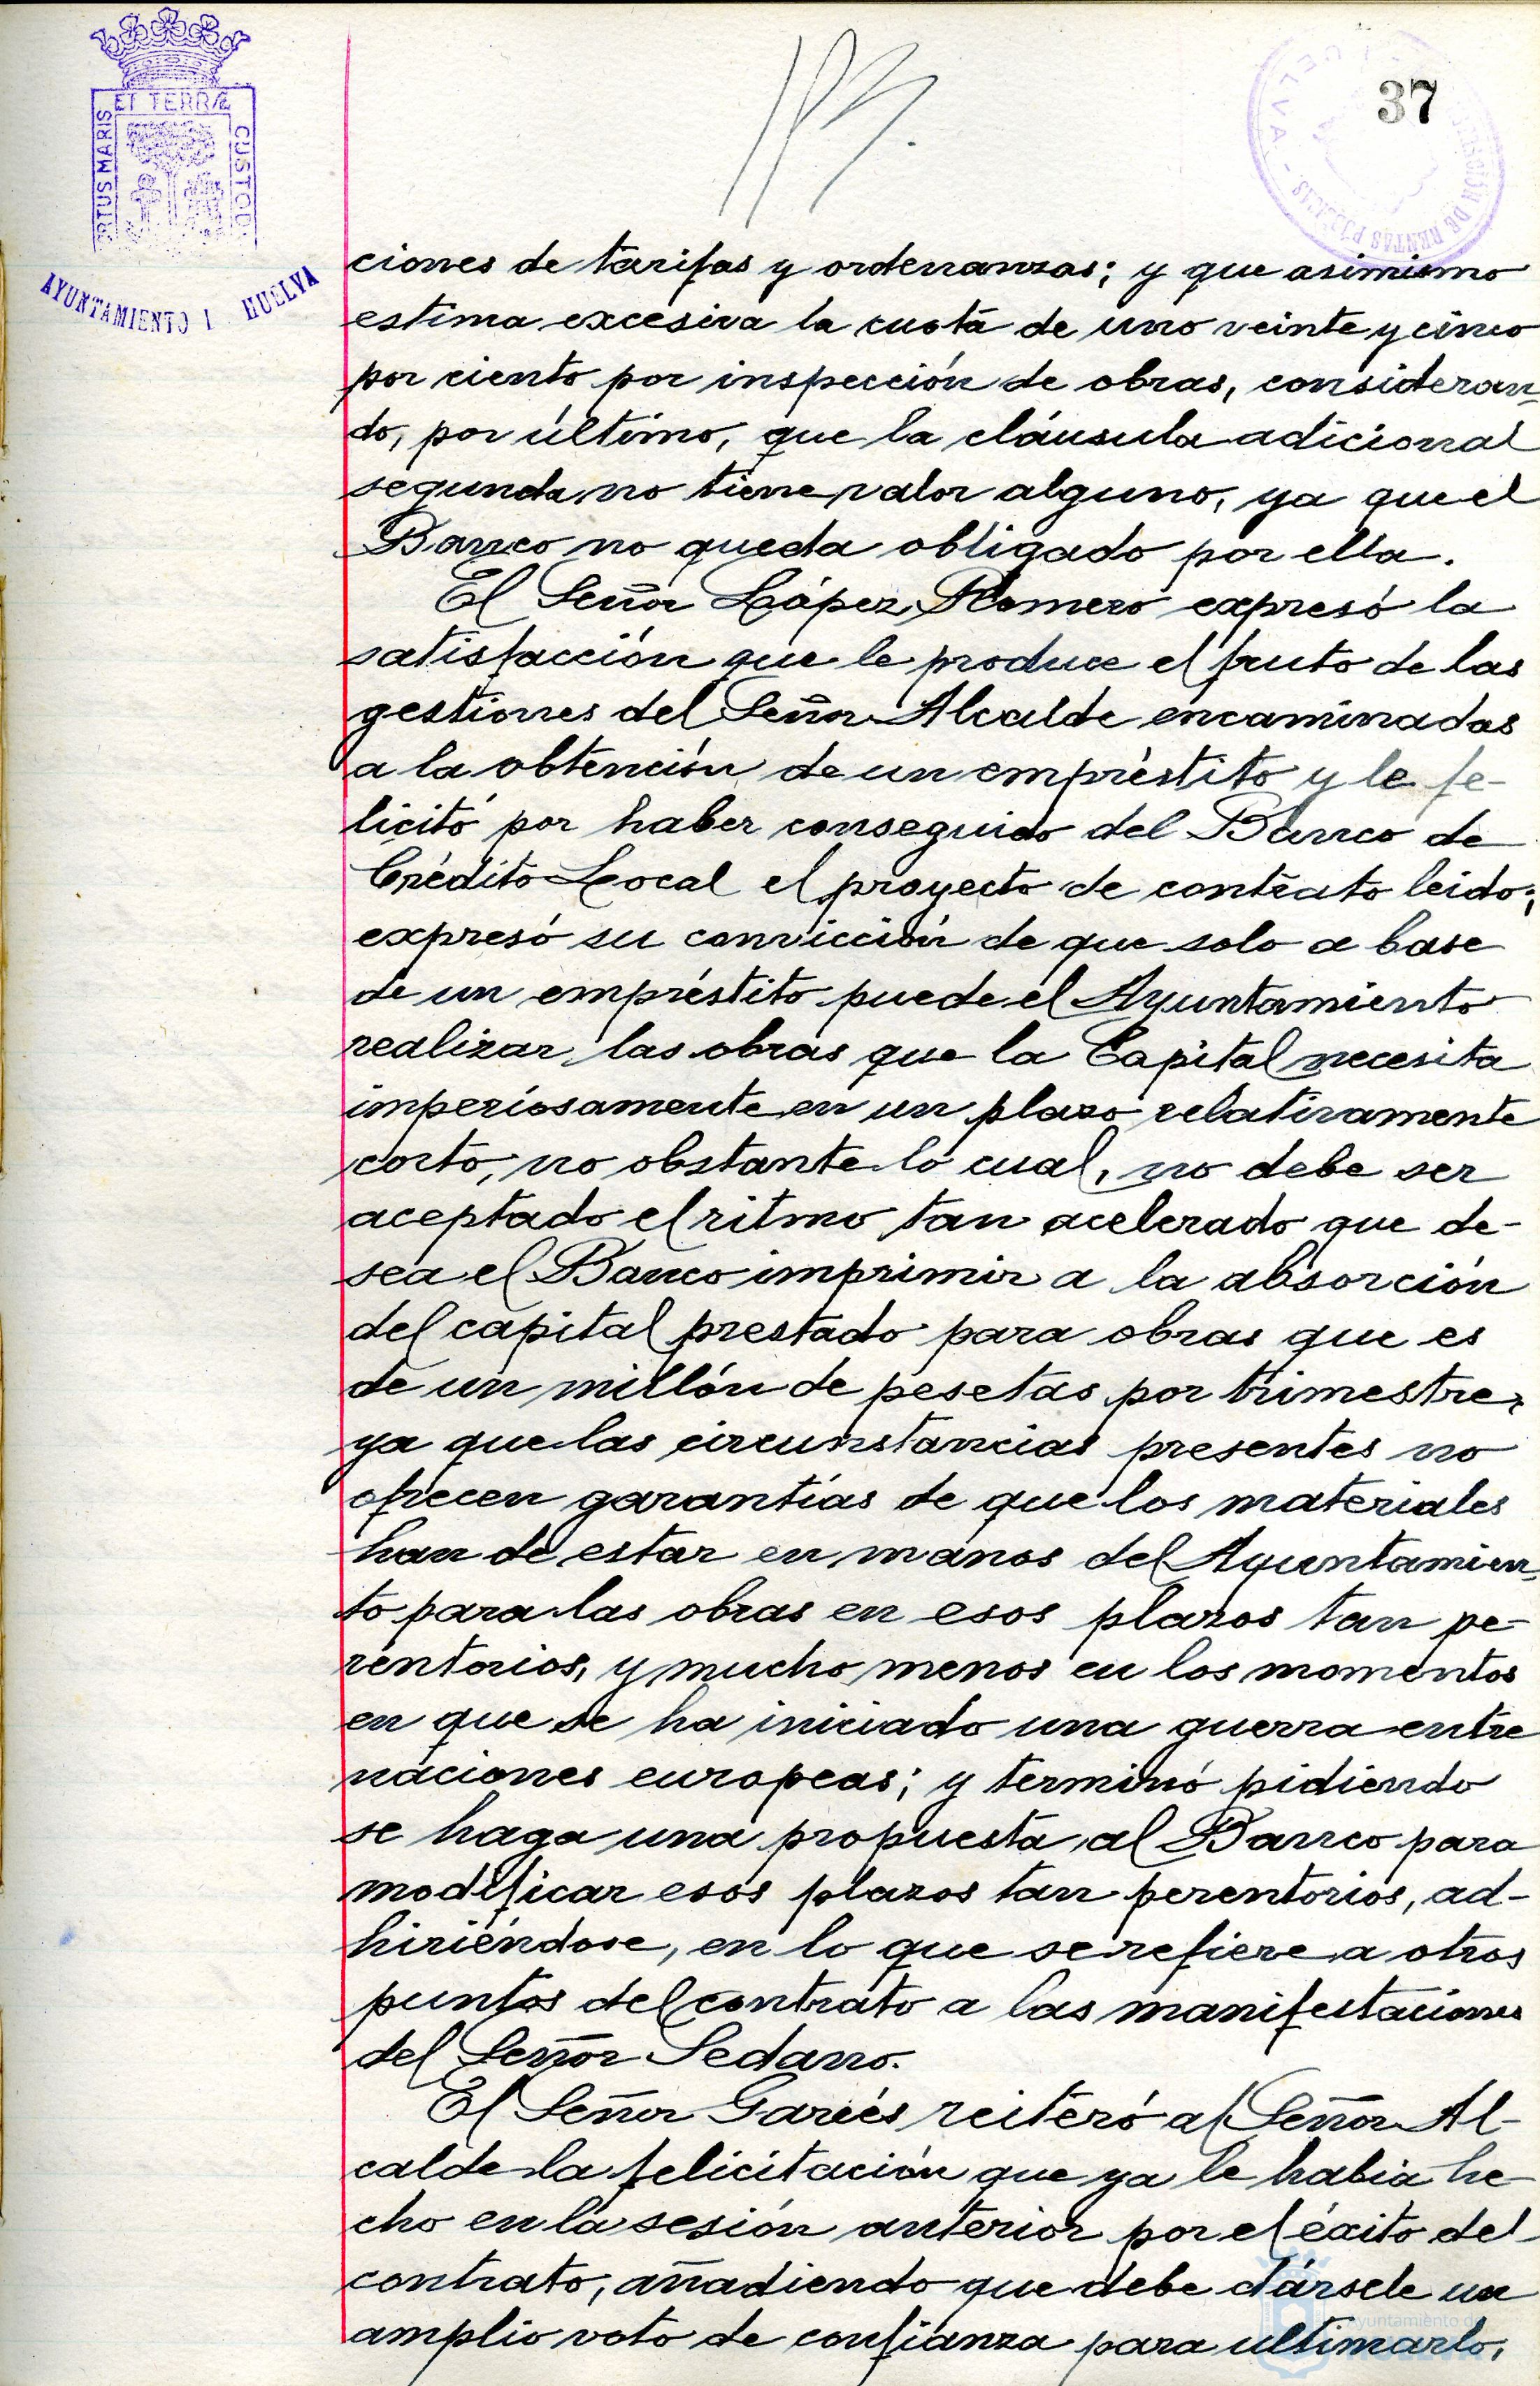 37
ET TERRÆ
RTUS MARIS
CUSTOD
AYUNTAMIENTO
HUELVA
ciones de tarifas y ordenanzas; y que asimismo
estima excesiva la cuota de uno veinte y cinco
por ciento por inspección de obras, consideran-
do, por último, que la cláusula adicional
segunda no tiene valor alguno, ya que el
Banco no queda obligado por ella.
El Señor López Romero expresó la
satisfacción que le produce el fruto de las
gestiones del Señor Alcalde encaminadas
a la obtención de un empréstito y le fe-
licitó por haber conseguido del Banco de
Crédito Local el proyecto de contrato leido;
expresó su convicción de que solo a base
de un empréstito puede el Ayuntamiento
realizar las obras que la Capital necesita
imperiosamente en un plazo relativamente
corto, no obstante lo cual, no debe ser
aceptado el ritmo tan acelerado que de-
sea el Banco imprimir a la absorción
del capital prestado para obras que es
de un millón de pesetas por trimestre,
ya que las circunstancias presentes no
ofrecen garantías de que los materiales
han de estar en manos del Ayuntamien-
to para las obras en esos plazos tan pe-
rentorios, y mucho menos en los momentos
en que se ha iniciado una guerra entre
naciones europeas; y terminó pidiendo
se haga una propuesta al Banco para
modificar esos plazos tan perentorios, ad-
hiriéndose, en lo que se refiere a otros
puntos del contrato a las manifestaciones
del Señor Sedano.
El Señor Garcés reiteró al Señor Al-
calde la felicitación que ya le habia he-
cho en la sesión anterior por el éxito del
contrato, añadiendo que debe dársele un
amplio voto de confianza para ultimarlo,
Ayuntamiento de
HUELVA